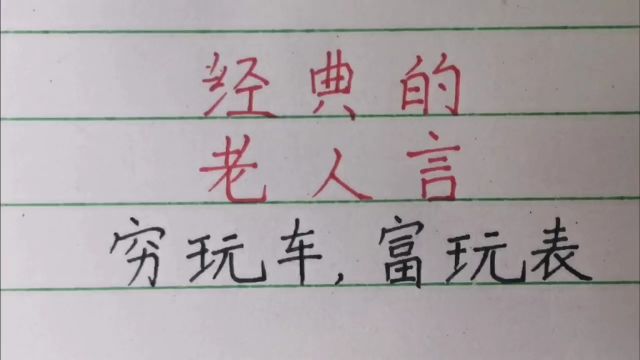 经典的
老人言
穷玩车,富玩表